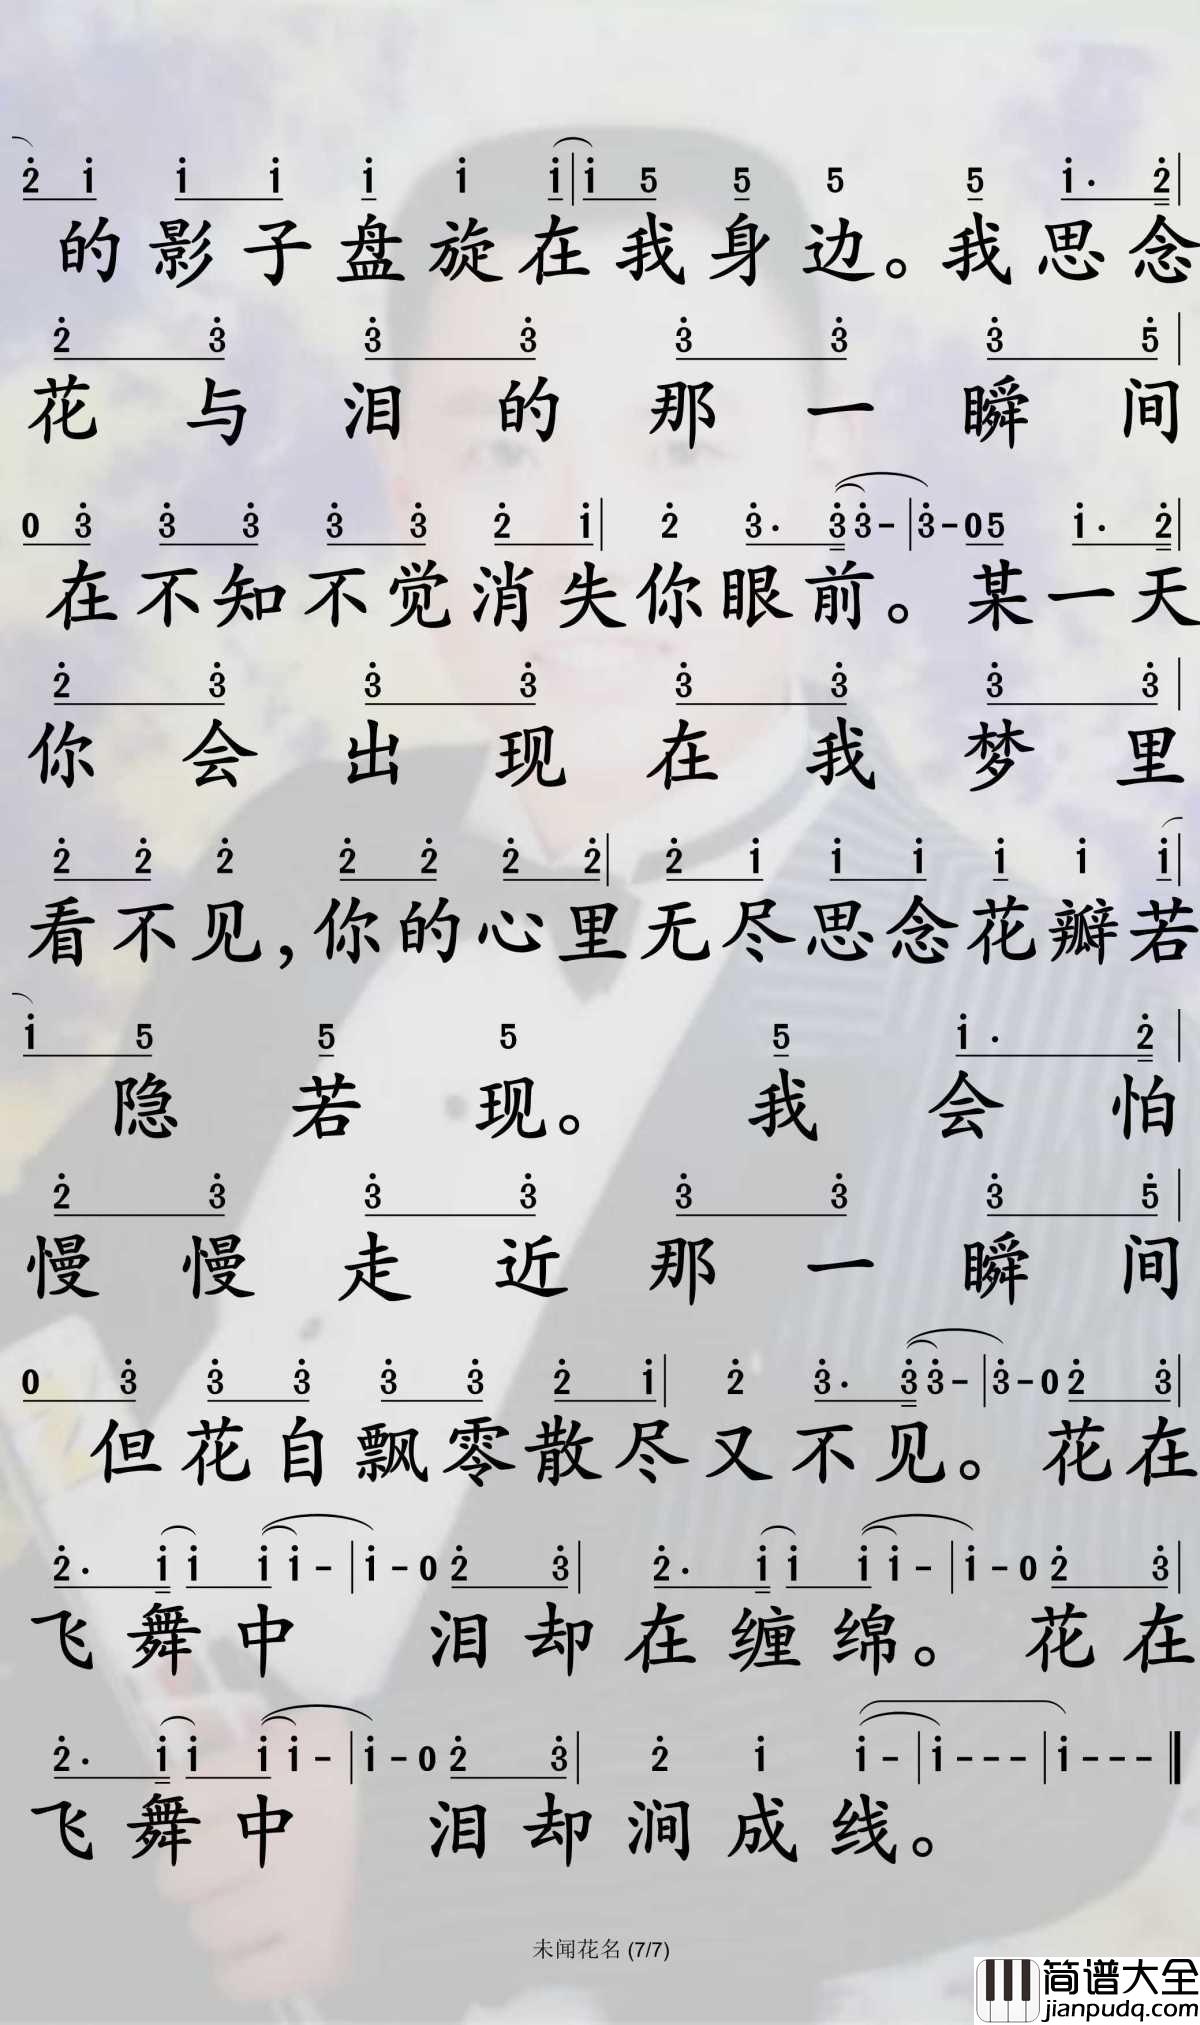 2 1 1 1 1 1 1 | 1 5 5 5 5 1· 2 |
的影子盘旋在我身边。我思念
2 3 3 3 3 3 3 5 |
花与泪的那一瞬间
0 3 3 3 3 3 2 1 | 2 3· 3 3 - | 3 - 0 5 1· 2 |
在不知不觉消失你眼前。某一天
2 3 3 3 3 3 3 3 |
你会出现在我梦里
2 2 2 2 2 2 2 | 2 1 1 1 1 1 1 |
看不见,你的心里无尽思念花瓣若
1 5 5 5 5 1· 2 |
隐若现。我会怕
2 3 3 3 3 3 3 5 |
慢慢走近那一瞬间
0 3 3 3 3 3 2 1 | 2 3· 3 3 - | 3 - 0 2 3 |
但花自飘零散尽又不见。花在
2· 1 1 1 1 - | 1 - 0 2 3 | 2· 1 1 1 1 - | 1 - 0 2 3 |
飞舞中 泪却在缠绵。花在
2· 1 1 1 1 - | 1 - 0 2 3 | 2 1 1 - | 1 - - - | 1 - - - ‖
飞舞中 泪却涧成线。
未闻花名 (7/7)
简谱大全
jianpudq.com